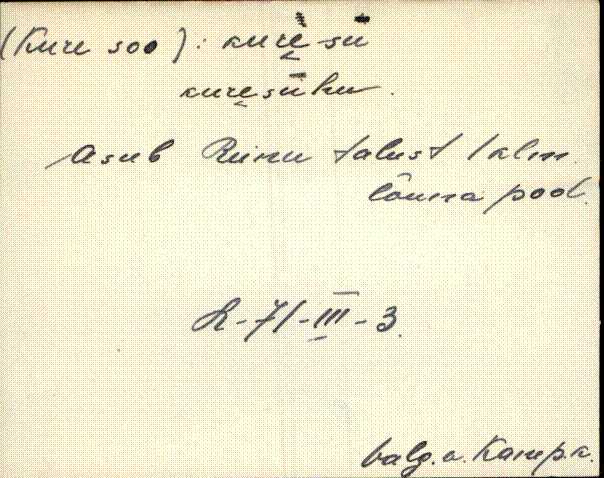 (Kure soo): kure̬ sū
kure̬sūhu.
Asub Reinu talust 1 klm
lõuna pool.
L-71-III-3.
balg. a. Kamp.k.